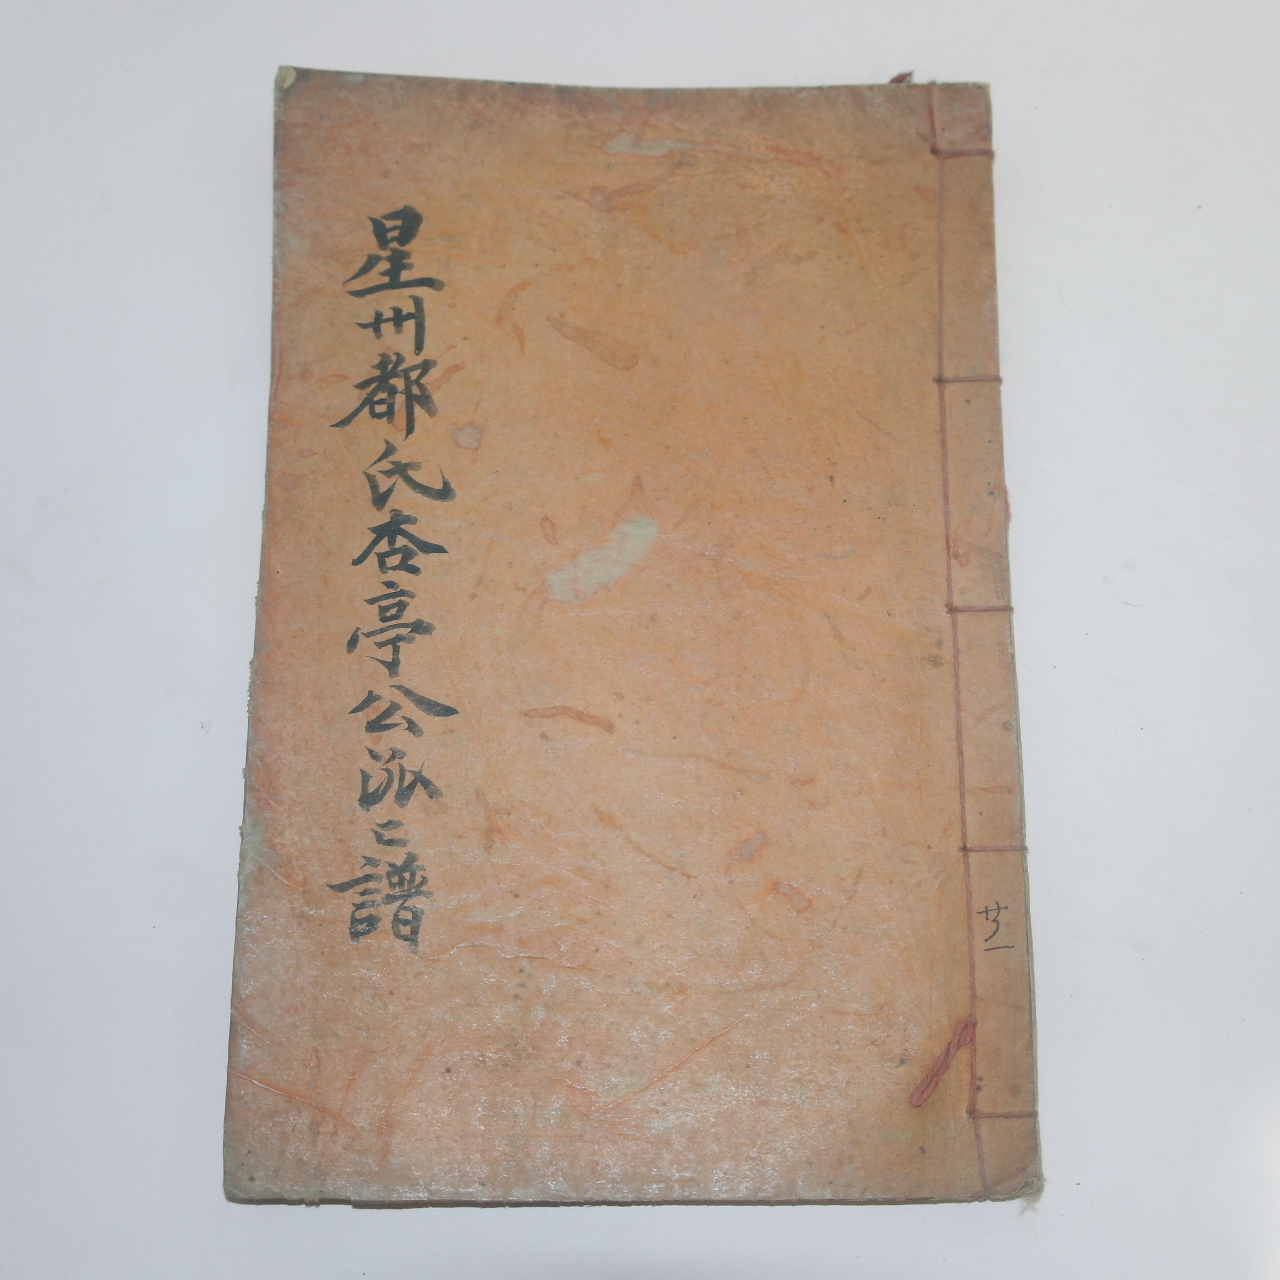 星州都氏杏亭公派〻譜